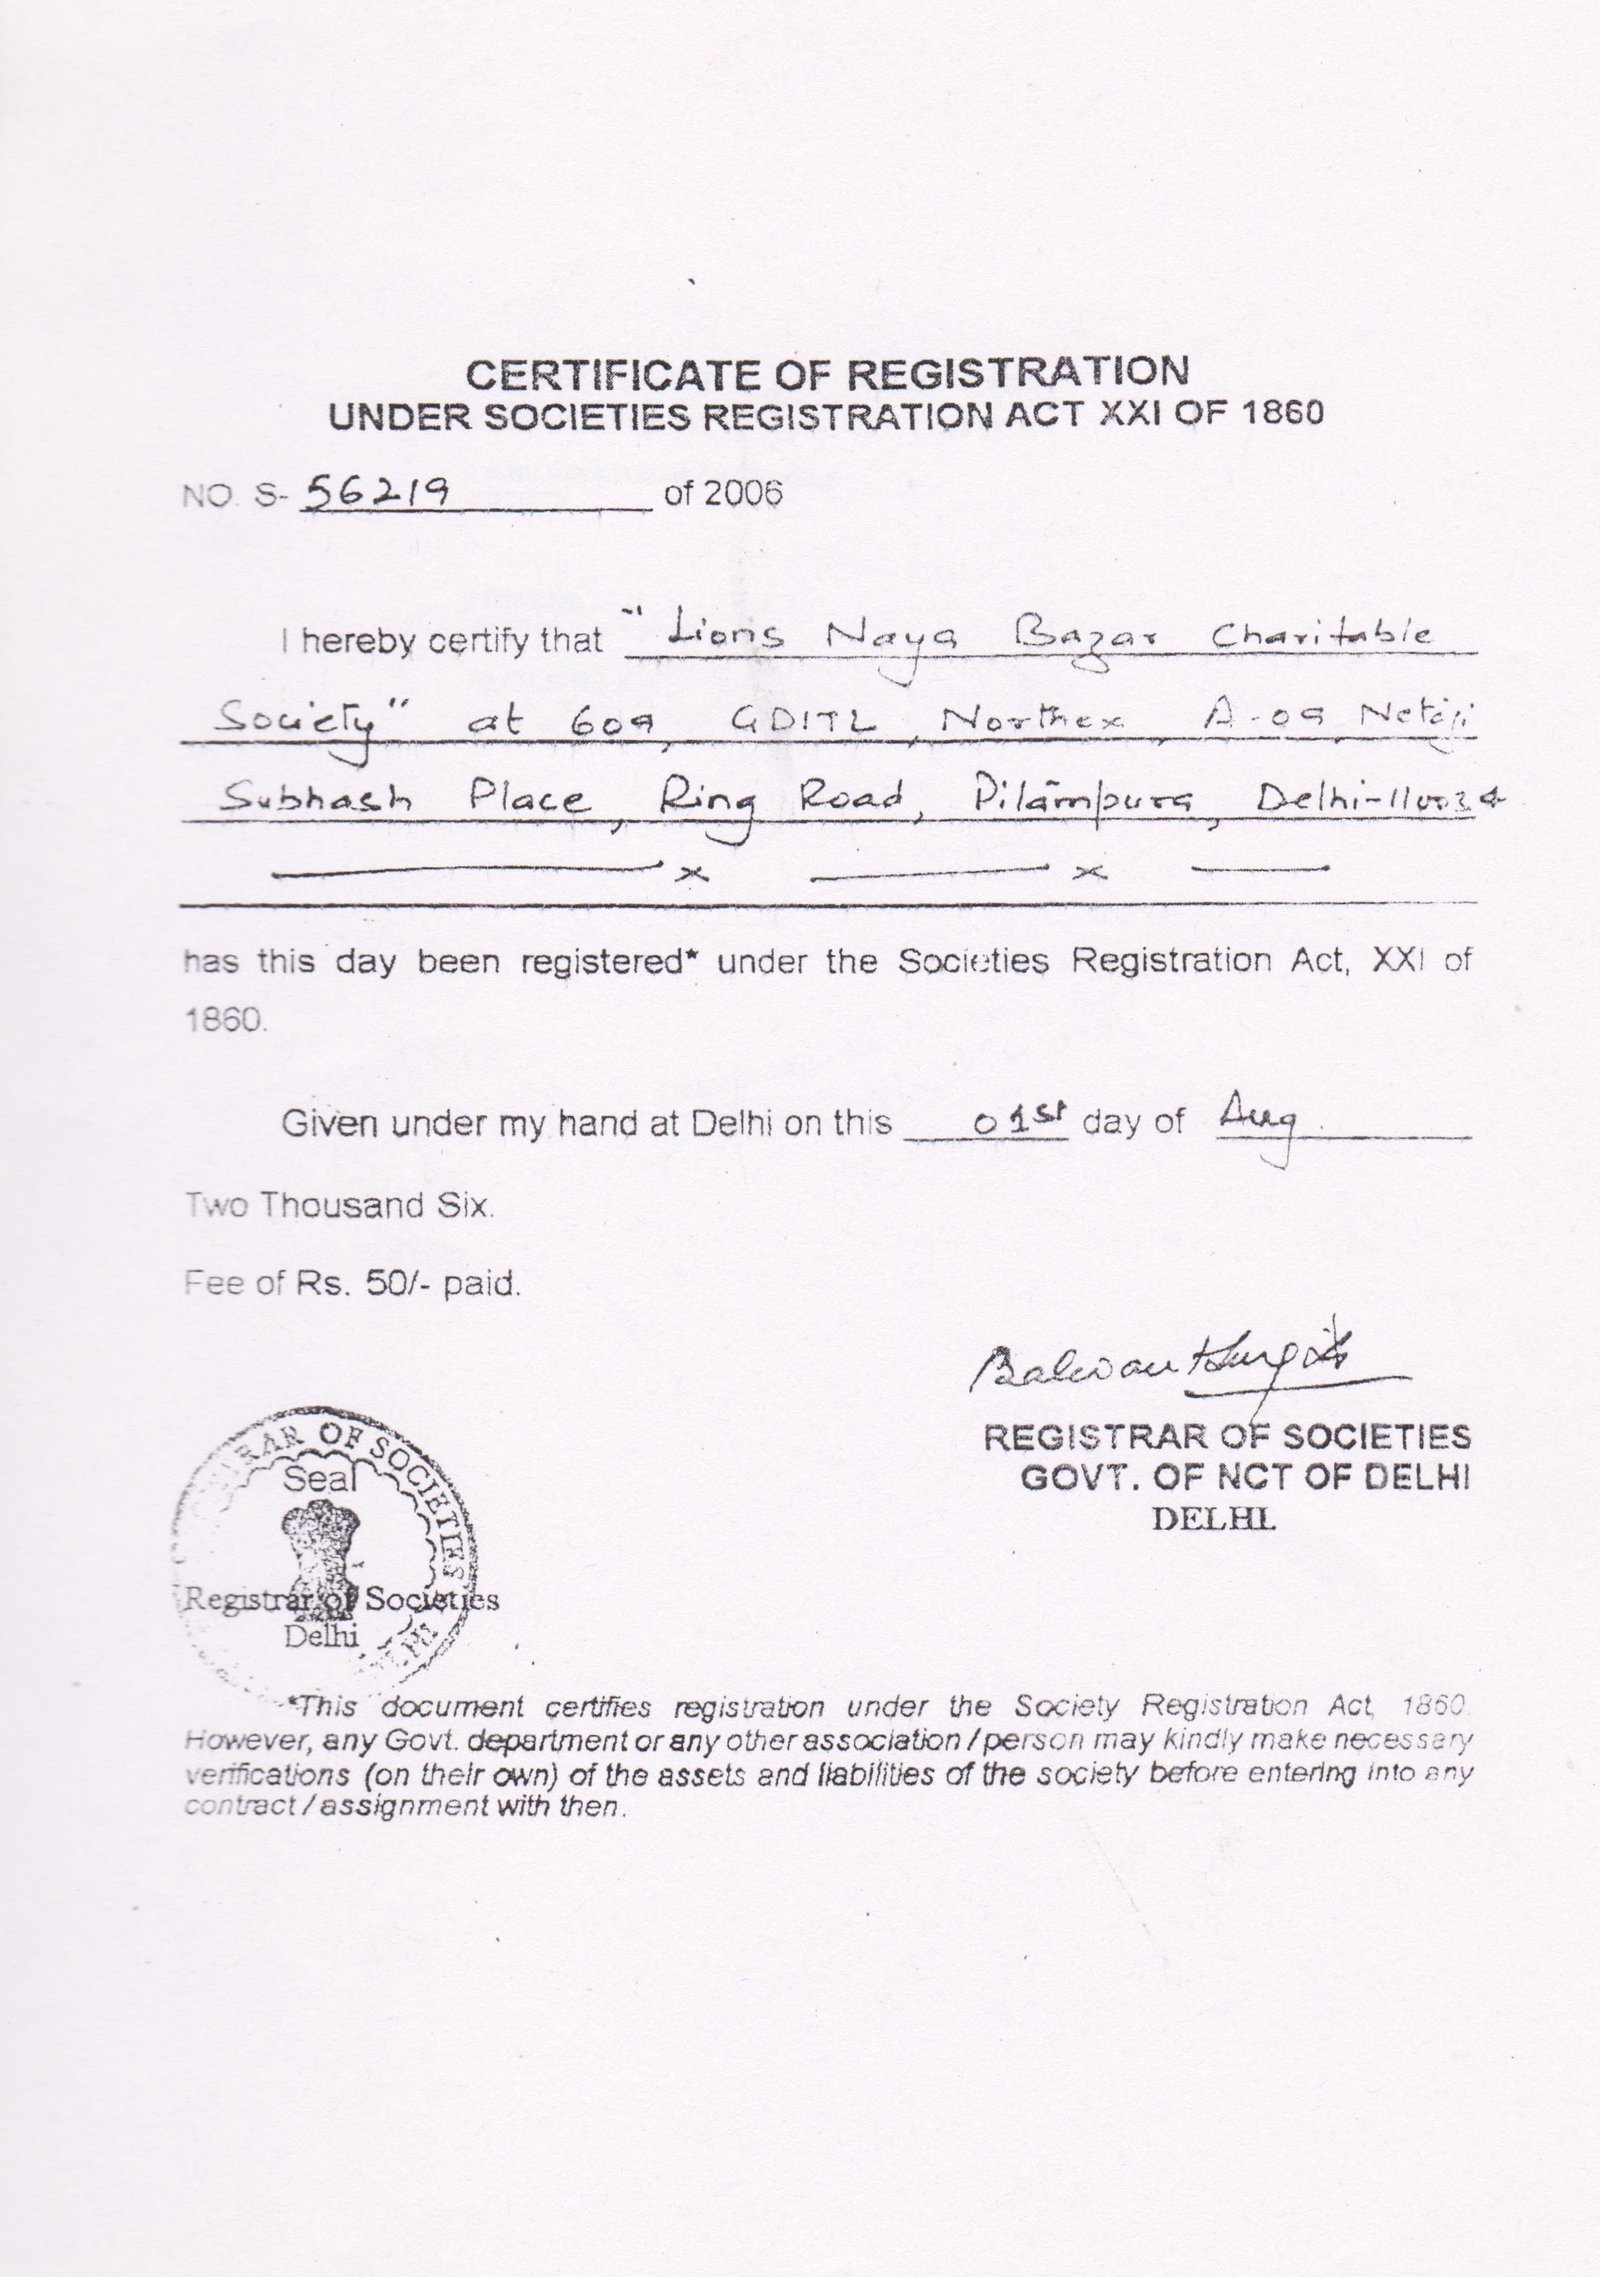 CERTIFICATE OF REGISTRATION
UNDER SOCIETIES REGISTRATION ACT XXI OF 1860
NO. S- 56219 of 2006
I hereby certify that "Lions Naya Bazar Charitable
Society" at 609, GDITL, Northex, A-09, Netaji
Subhash Place, Ring Road, Pitampura, Delhi-110034
x x
has this day been registered* under the Societies Registration Act, XXI of
1860.
Given under my hand at Delhi on this 01st day of Aug.
Two Thousand Six.
Fee of Rs. 50/- paid.
REGISTRAR OF SOCIETIES
GOVT. OF NCT OF DELHI
DELHI.
OF SOCIETIES
Seal
Registrar of Societies
Delhi
*This document certifies registration under the Society Registration Act, 1860.
However, any Govt. department or any other association / person may kindly make necessary
verifications (on their own) of the assets and liabilities of the society before entering into any
contract / assignment with then.